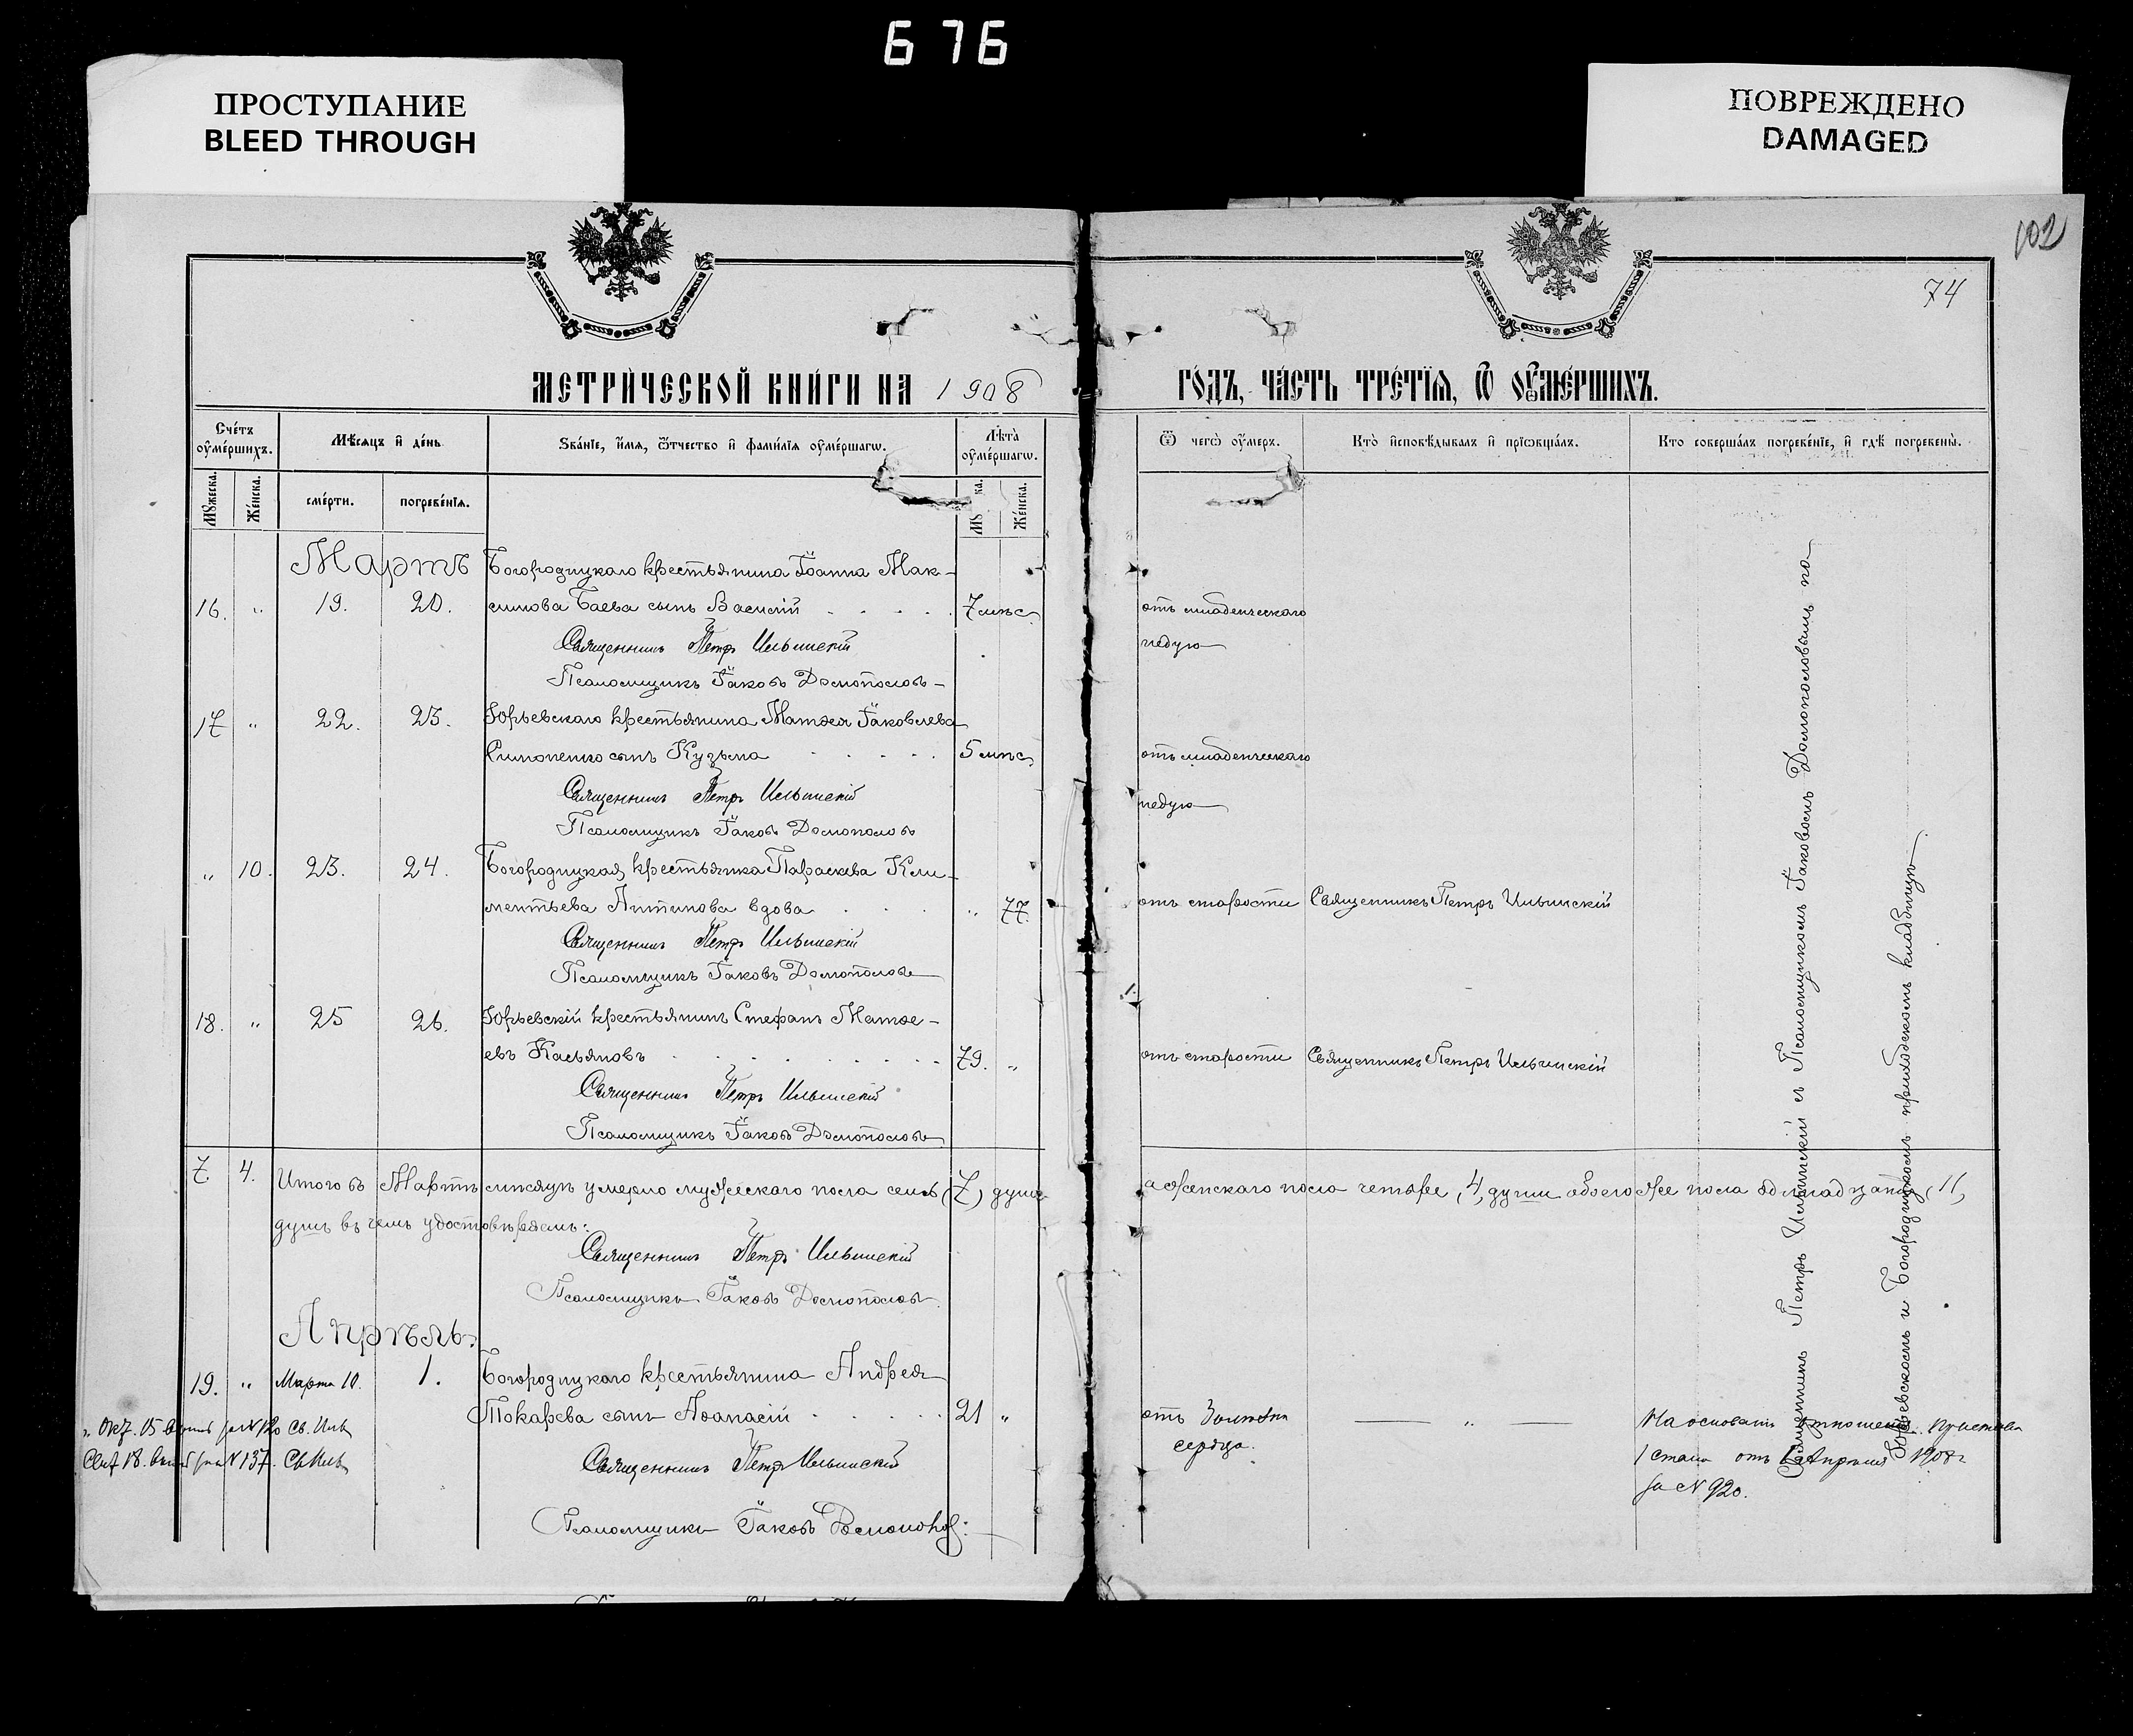 676
ПРОСТУПАНИЕ
BLEED THROUGH
ПОВРЕЖДЕНО
DAMAGED
102
74
МЕТРИЧЕСКОЙ КНИГИ НА 1908
ГОДЪ, ЧАСТЬ ТРЕТІЯ, Ѿ ОУМЕРШИХЪ.
Счетъ оумершихъ.
Мужеска.
Женска.
Мѣсяцъ и день
смерти.
погребенія.
Званіе, имя, отчество и фамилія оумершагѡ.
Лѣта оумершагѡ.
Му ка.
Женска.
Ѿ чегѡ оумеръ.
Кто исповѣдывалъ и пріѡбщалъ.
Кто совершалъ погребеніе, и гдѣ погребены.
Мартъ Богородицкаго крестьянина Іоанна Мак-
16. " 19. 20. симова Баева сынъ Василій 7 мѣс. отъ младенческаго
Священникъ Петръ Ильинскій недуга
Псаломщикъ Іаковъ Домополовъ
17 " 22. 23. Юрьевскаго крестьянина Матѳея Іаковлева
Симоненко сынъ Кузьма 5 мѣс. отъ младенческаго
Священникъ Петръ Ильинскій недуга
Псаломщикъ Іаковъ Домополовъ
" 10. 23. 24. Богородицкая крестьянка Параскева Кли-
ментьева Антипова вдова " 77. отъ старости Священникъ Петръ Ильинскій
Священникъ Петръ Ильинскій
Псаломщикъ Іаковъ Домополовъ
18. " 25 26. Юрьевскій крестьянинъ Стефанъ Матѳе-
евъ Касьяновъ 79. " отъ старости Священникъ Петръ Ильинскій
Священникъ Петръ Ильинскій
Псаломщикъ Іаковъ Домополовъ
7. 4. Итого въ Мартѣ мѣсяцѣ умерло мужескаго пола семь (7) душъ а женскаго пола четыре (4) души обоего же пола одиннадцать (11)
душъ въ чемъ удостовѣряемъ:
Священникъ Петръ Ильинскій
Псаломщикъ Іаковъ Домополовъ
Апрѣль.
19. " Марта 10. 1. Богородицкаго крестьянина Андрея
Токарева сынъ Аѳанасій 21 " отъ сердца. "
Священникъ Петръ Ильинскій
Псаломщикъ Іаковъ
15 № 120 Св. Иль
18. № 137. Св. Иль
На основаніи отношенія Пристава
1 стана отъ Апрѣля 1908 г
за № 920.
Священникъ Петръ Ильинскій съ Псаломщикомъ Іаковомъ Домополовымъ на
Юрьевскомъ и Богородицкомъ приходскомъ кладбищѣ